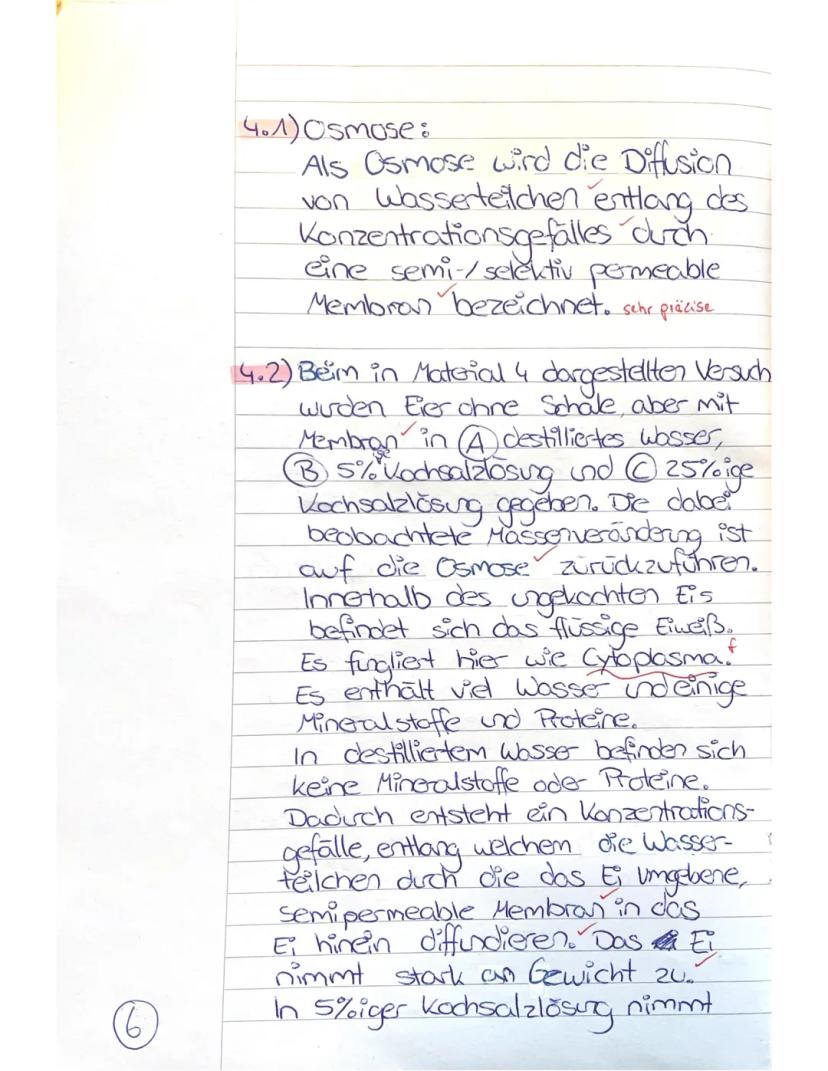 4.1) Osmose:
Als Osmose wird die Diffusion
von Wasserteilchen entlang des
Konzentrationsgefälles durch
eine semi-/selektiv permeable
Membran bezeichnet. sehr präzise
4.2) Beim in Material 4 dargestellten Versuch
wurden Eier ohne Schale, aber mit
Membran in (A) destilliertes Wasser,
(B) 5% Kochsalzlösung und (C) 25%ige
Kochsalzlösung gegeben. Die dabei
beobachtete Massenveränderung ist
auf die Osmose zurückzuführen.
Innerhalb des ungekochten Eis
befindet sich das flüssige Eiweiß.
Es fungiert hier wie Cytoplasma. f
Es enthält viel Wasser und einige
Mineralstoffe und Proteine.
In destilliertem Wasser befinden sich
keine Mineralstoffe oder Proteine.
Dadurch entsteht ein Konzentrations-
gefälle, entlang welchem die Wasser-
teilchen durch die das Ei umgebene,
semipermeable Membran in das
Ei hinein diffundieren. Das Ei
nimmt stark an Gewicht zu.
In 5%iger Kochsalzlösung nimmt
6